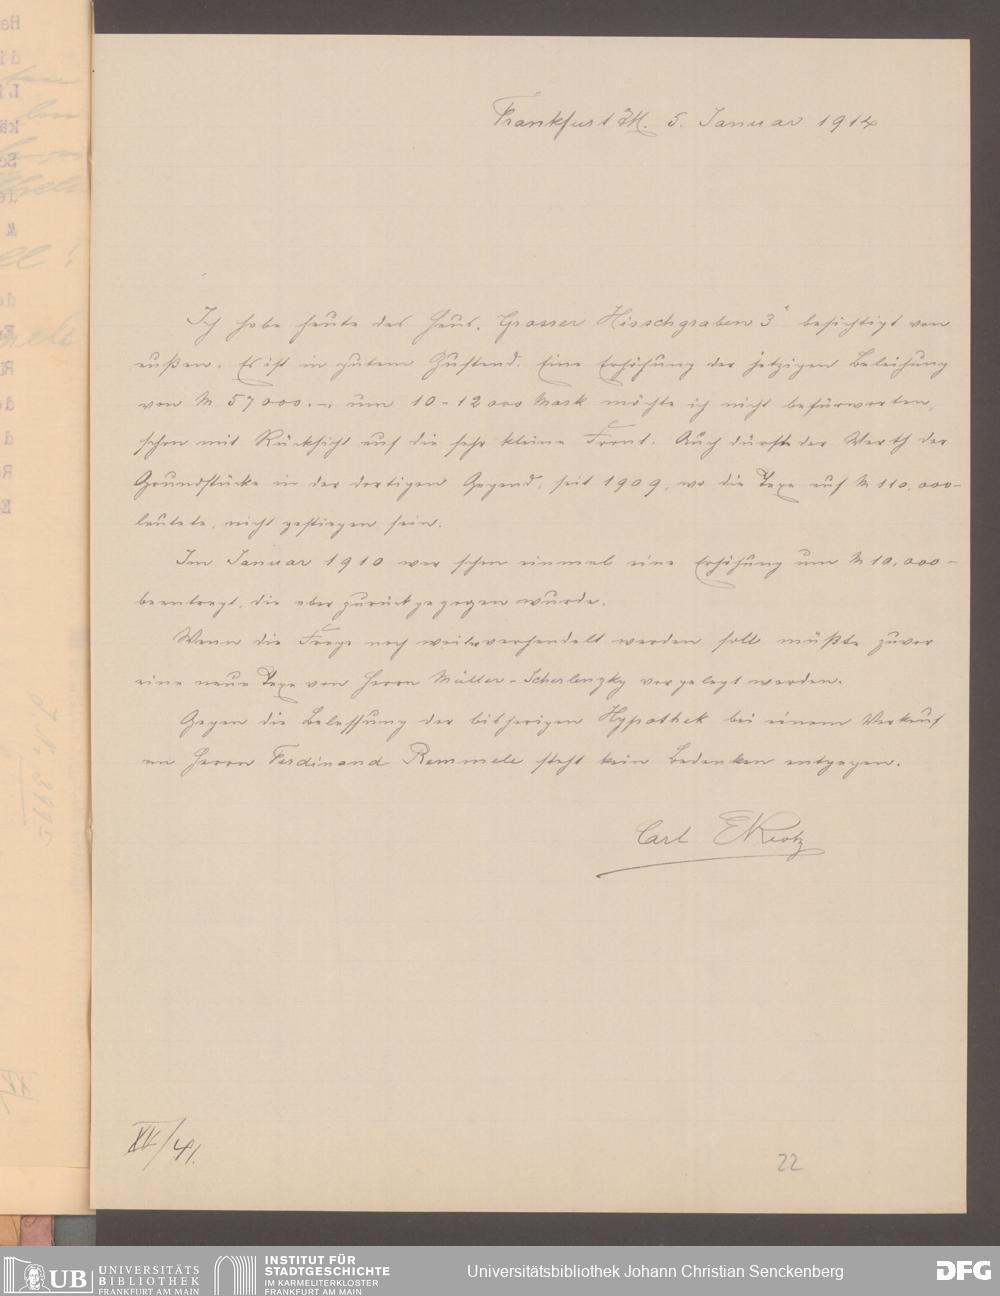 Frankfurt a/M. 5. Januar 1914
Ich habe heute das Haus „Grosser Hirschgraben 3" besichtigt von
außen. Es ist in gutem Zustand. Eine Erhöhung der jetzigen Beleihung
von M 57000.–, um 10-12000 Mark möchte ich nicht befürworten,
schon mit Rücksicht auf die sehr kleine Front. Auch dürfte der Werth der
Grundstücke in der dortigen Gegend, seit 1909, wo die Taxe auf M 110,000–
lautete, nicht gestiegen sein.
Im Januar 1910 war schon einmal eine Erhöhung um M 10,000–
beantragt, die aber zurückgezogen wurde.
Wenn die Frage noch weiter verhandelt werden soll müßte zuvor
eine neue Taxe von Herrn Müller-Scherlenzky vorgelegt werden.
Gegen die Belassung der bisherigen Hypothek bei einem Verkauf
an Herrn Ferdinand Remmele steht kein Bedenken entgegen.
Carl
XII/41.
22
UB UNIVERSITÄTS
BIBLIOTHEK
FRANKFURT AM MAIN
INSTITUT FÜR
STADTGESCHICHTE
IM KARMELITERKLOSTER
FRANKFURT AM MAIN
Universitätsbibliothek Johann Christian Senckenberg
DFG